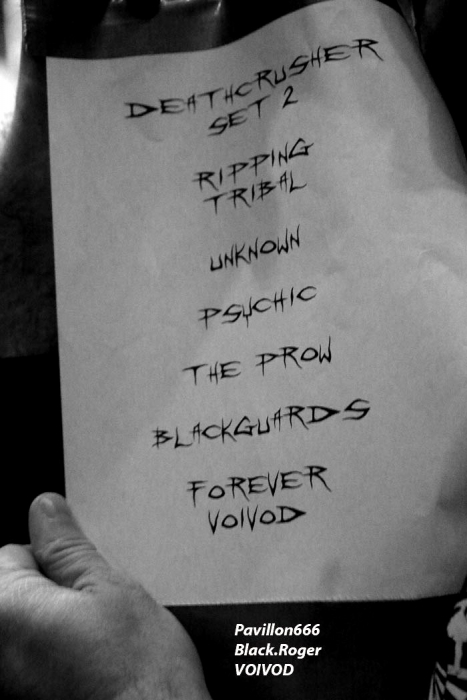 DEATHCRUSHER
SET 2
RIPPING
TRIBAL
UNKNOWN
PSYCHIC
THE PROW
BLACKGUARDS
FOREVER
VOIVOD
Pavillon666
Black.Roger
VOIVOD